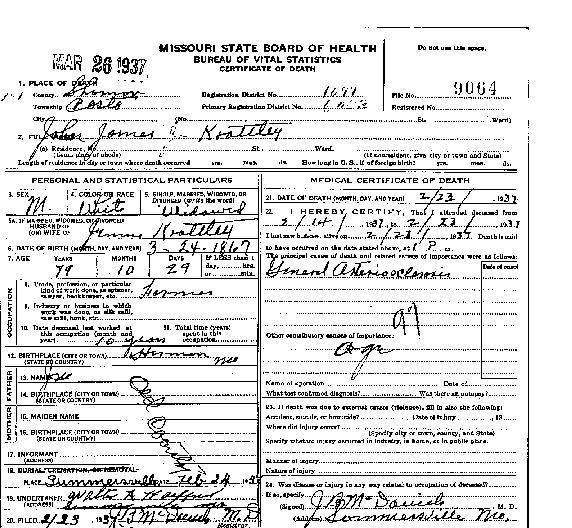 MISSOURI STATE BOARD OF HEALTH
BUREAU OF VITAL STATISTICS
CERTIFICATE OF DEATH
Do not use this space.
MAR 26 1937
1. PLACE OF DEATH
County
Registration District No.
File No. 9064
Township
Primary Registration District No.
Registered No.
City (No. St. Ward)
2. FULL John James Koattley
(a) Residence, No. St. Ward.
(Usual place of abode) (If nonresident, give city or town and State)
Length of residence in city or town where death occurred yrs. mos. ds. How long in U.S., if of foreign birth? yrs. mos. ds.
PERSONAL AND STATISTICAL PARTICULARS
3. SEX M 4. COLOR OR RACE White 5. SINGLE, MARRIED, WIDOWED, OR DIVORCED (write the word) Widowed
5A. IF MARRIED, WIDOWED, OR DIVORCED
HUSBAND OF
(OR) WIFE OF Koattley
6. DATE OF BIRTH (MONTH, DAY, AND YEAR) 3-24-1867
7. AGE YEARS MONTHS DAYS If LESS than 1 day, hrs. or min.
79 10 29
OCCUPATION
8. Trade, profession, or particular kind of work done, as spinner, sawyer, bookkeeper, etc. Farmer
9. Industry or business in which work was done, as silk mill, saw mill, bank, etc.
10. Date deceased last worked at this occupation (month and year) 10 years
11. Total time (years) spent in this occupation
12. BIRTHPLACE (CITY OR TOWN) Herman
(STATE OR COUNTRY) Mo
FATHER
13. NAME
14. BIRTHPLACE (CITY OR TOWN)
(STATE OR COUNTRY)
MOTHER
15. MAIDEN NAME
16. BIRTHPLACE (CITY OR TOWN)
(STATE OR COUNTRY)
17. INFORMANT
(ADDRESS)
18. BURIAL, CREMATION, OR REMOVAL
PLACE Summersville DATE Feb 24 1937
19. UNDERTAKER
(ADDRESS)
20. FILED 2/23 1937 J B McDaniels M.D.
MEDICAL CERTIFICATE OF DEATH
21. DATE OF DEATH (MONTH, DAY, AND YEAR) 2/23/ 1937
22. I HEREBY CERTIFY, That I attended deceased from
2/14/ 1937, to 2/23/ 1937
I last saw h alive on 2/23/ 1937 Death is said
to have occurred on the date stated above, at 1 P. m.
The principal cause of death and related causes of importance were as follows:
Date of onset
General Arteriosclerosis
97
Other contributory causes of importance:
Age
Name of operation Date of
What test confirmed diagnosis? Was there an autopsy?
23. If death was due to external causes (violence), fill in also the following:
Accident, suicide, or homicide? Date of injury , 19
Where did injury occur?
(Specify city or town, county, and State)
Specify whether injury occurred in industry, in home, or in public place.
Manner of injury
Nature of injury
24. Was disease or injury in any way related to occupation of deceased?
If so, specify
(Signed) J B McDaniels, M. D.
(Address) Summersville Mo.